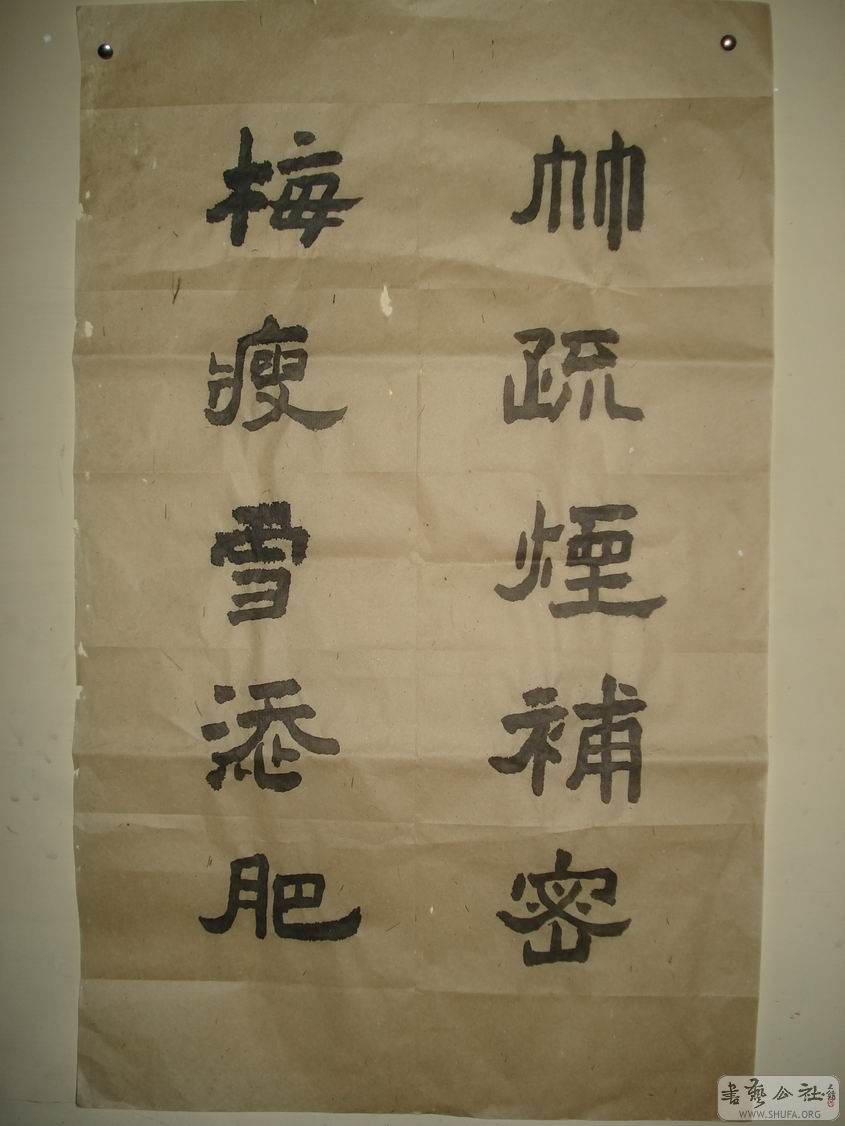 竹疏煙補密
梅瘦雪添肥
書藝公社
WWW.SHUFA.ORG